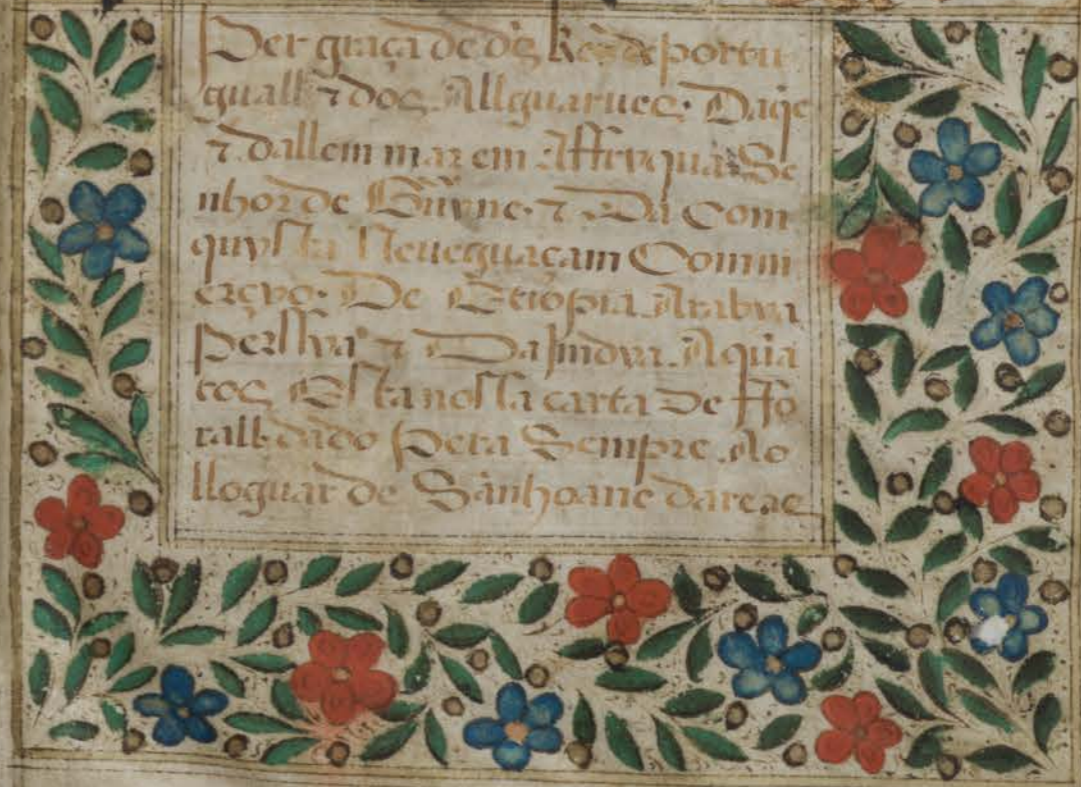 Per graça de dš Rey de portu
guall ⁊ dos Allguarues. Daqe
⁊ dallem mar em Affryqua Se
nhor de Guyne. ⁊ Da Com
quysta Neueguaçam Comm
erçyo. De Etiopia Arabya
Perssya ⁊ Da Jndya. A quã
tos Esta nossa carta De Ffo
rall dado Pera Sempre Ao
lloguar de Sanhoane dareae